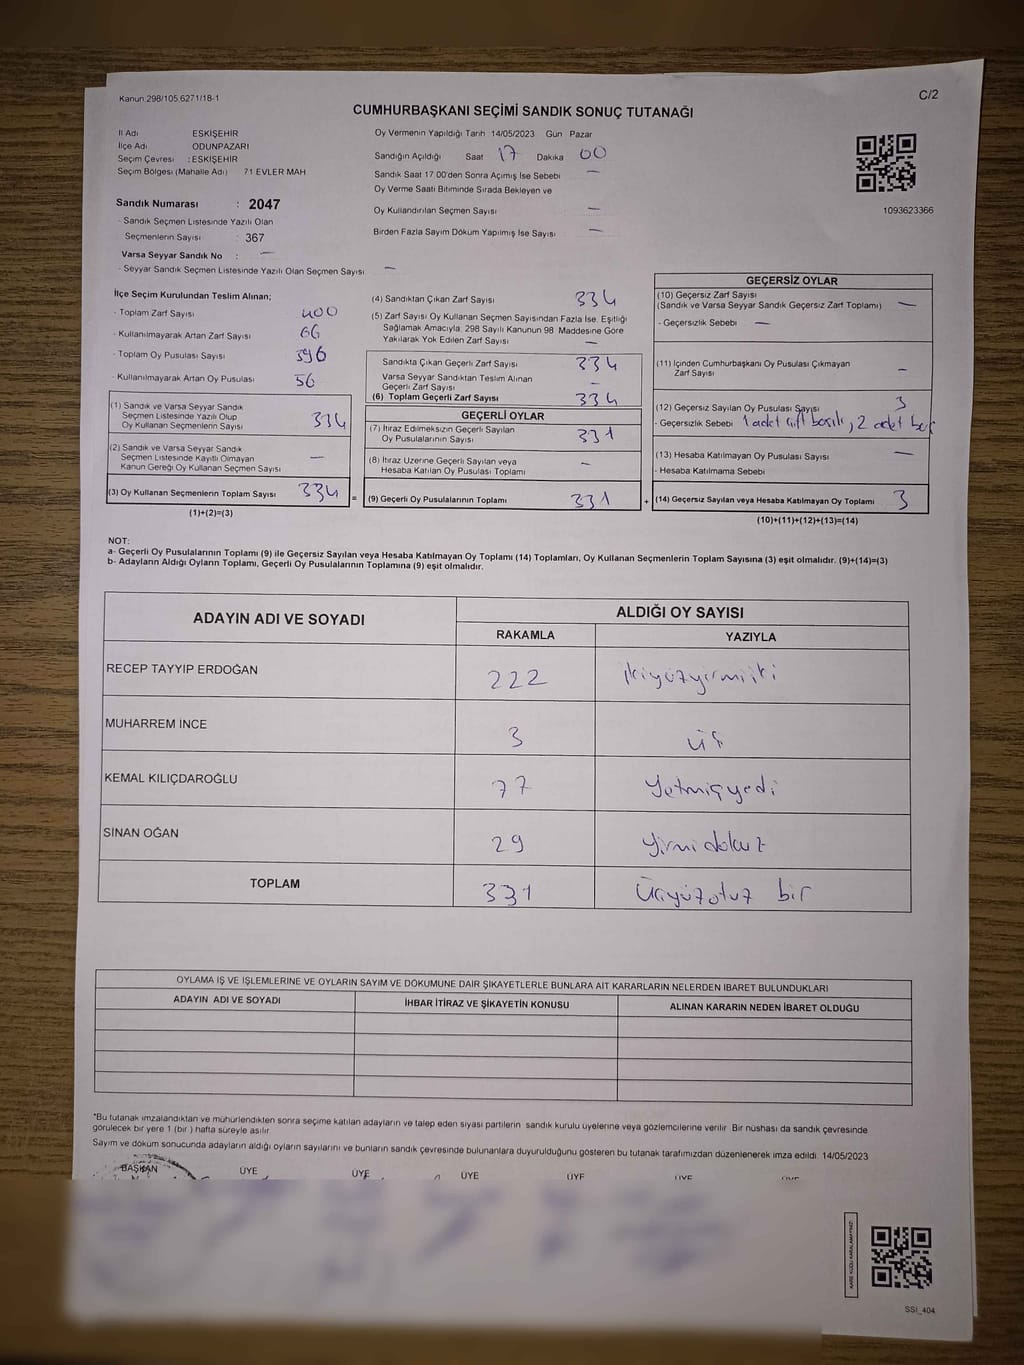 Kanun 298/105,6271/18-1
C/2
CUMHURBAŞKANI SEÇİMİ SANDIK SONUÇ TUTANAĞI
İl Adı ESKİŞEHİR
İlçe Adı ODUNPAZARI
Seçim Çevresi : ESKİŞEHİR
Seçim Bölgesi (Mahalle Adı) 71 EVLER MAH
Sandık Numarası : 2047
- Sandık Seçmen Listesinde Yazılı Olan
Seçmenlerin Sayısı : 367
Varsa Seyyar Sandık No : —
- Seyyar Sandık Seçmen Listesinde Yazılı Olan Seçmen Sayısı —
Oy Vermenin Yapıldığı Tarih 14/05/2023 Gün Pazar
Sandığın Açıldığı Saat 17 Dakika 00
Sandık Saat 17 00'den Sonra Açımış İse Sebebi —
Oy Verme Saati Bitiminde Sırada Bekleyen ve
Oy Kullandırılan Seçmen Sayısı —
Birden Fazla Sayım Döküm Yapılmış İse Sayısı —
1093623366
İlçe Seçim Kurulundan Teslim Alınan;
- Toplam Zarf Sayısı 400
- Kullanılmayarak Artan Zarf Sayısı 66
- Toplam Oy Pusulası Sayısı 396
- Kullanılmayarak Artan Oy Pusulası 56
(1) Sandık ve Varsa Seyyar Sandık
Seçmen Listesinde Yazılı Olup
Oy Kullanan Seçmenlerin Sayısı 334
(2) Sandık ve Varsa Seyyar Sandık
Seçmen Listesinde Kayıtlı Olmayan
Kanun Gereği Oy Kullanan Seçmen Sayısı —
(3) Oy Kullanan Seçmenlerin Toplam Sayısı 334
(1)+(2)=(3)
(4) Sandıktan Çıkan Zarf Sayısı 334
(5) Zarf Sayısı Oy Kullanan Seçmen Sayısından Fazla İse, Eşitliği
Sağlamak Amacıyla, 298 Sayılı Kanunun 98. Maddesine Göre
Yakılarak Yok Edilen Zarf Sayısı —
Sandıkta Çıkan Geçerli Zarf Sayısı 334
Varsa Seyyar Sandıktan Teslim Alınan
Geçerli Zarf Sayısı —
(6) Toplam Geçerli Zarf Sayısı 334
GEÇERLİ OYLAR
(7) İtiraz Edilmeksizin Geçerli Sayılan
Oy Pusulalarının Sayısı 331
(8) İtiraz Üzerine Geçerli Sayılan veya
Hesaba Katılan Oy Pusulası Toplamı —
= (9) Geçerli Oy Pusulalarının Toplamı 331
GEÇERSİZ OYLAR
(10) Geçersiz Zarf Sayısı
(Sandık ve Varsa Seyyar Sandık Geçersiz Zarf Toplamı) —
- Geçersizlik Sebebi —
(11) İçinden Cumhurbaşkanı Oy Pusulası Çıkmayan
Zarf Sayısı —
(12) Geçersiz Sayılan Oy Pusulası Sayısı 3
- Geçersizlik Sebebi 1 adet çift basılı, 2 adet boş
(13) Hesaba Katılmayan Oy Pusulası Sayısı —
- Hesaba Katılmama Sebebi
+ (14) Geçersiz Sayılan veya Hesaba Katılmayan Oy Toplamı 3
(10)+(11)+(12)+(13)=(14)
NOT:
a- Geçerli Oy Pusulalarının Toplamı (9) ile Geçersiz Sayılan veya Hesaba Katılmayan Oy Toplamı (14) Toplamları, Oy Kullanan Seçmenlerin Toplam Sayısına (3) eşit olmalıdır. (9)+(14)=(3)
b- Adayların Aldığı Oyların Toplamı, Geçerli Oy Pusulalarının Toplamına (9) eşit olmalıdır.
ADAYIN ADI VE SOYADI ALDIĞI OY SAYISI
RAKAMLA YAZIYLA
RECEP TAYYİP ERDOĞAN 222 ikiyüzyirmiiki
MUHARREM İNCE 3 üç
KEMAL KILIÇDAROĞLU 77 Yetmişyedi
SİNAN OĞAN 29 yirmidokuz
TOPLAM 331 Üçyüzotuz bir
OYLAMA İŞ VE İŞLEMLERİNE VE OYLARIN SAYIM VE DÖKÜMÜNE DAİR ŞİKAYETLERLE BUNLARA AİT KARARLARIN NELERDEN İBARET BULUNDUKLARI
ADAYIN ADI VE SOYADI İHBAR İTİRAZ VE ŞİKAYETİN KONUSU ALINAN KARARIN NEDEN İBARET OLDUĞU
*Bu tutanak imzalandıktan ve mühürlendikten sonra seçime katılan adayların ve talep eden siyasi partilerin sandık kurulu üyelerine veya gözlemcilerine verilir. Bir nüshası da sandık çevresinde
görülecek bir yere 1 (bir ) hafta süreyle asılır.
Sayım ve döküm sonucunda adayların aldığı oyların sayılarını ve bunların sandık çevresinde bulunanlara duyurulduğunu gösteren bu tutanak tarafımızdan düzenlenerek imza edildi. 14/05/2023
BAŞKAN ÜYE ÜYE ÜYE ÜYE ÜYE
SSI_404